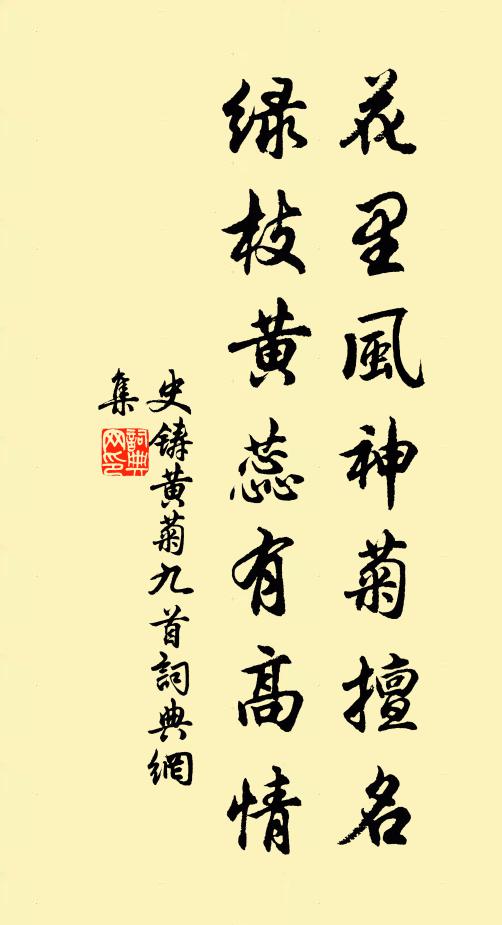 花里風神菊擅名
绿枝黄蕊有高情
史鑄黄菊九首詞典網
集
詞典网印